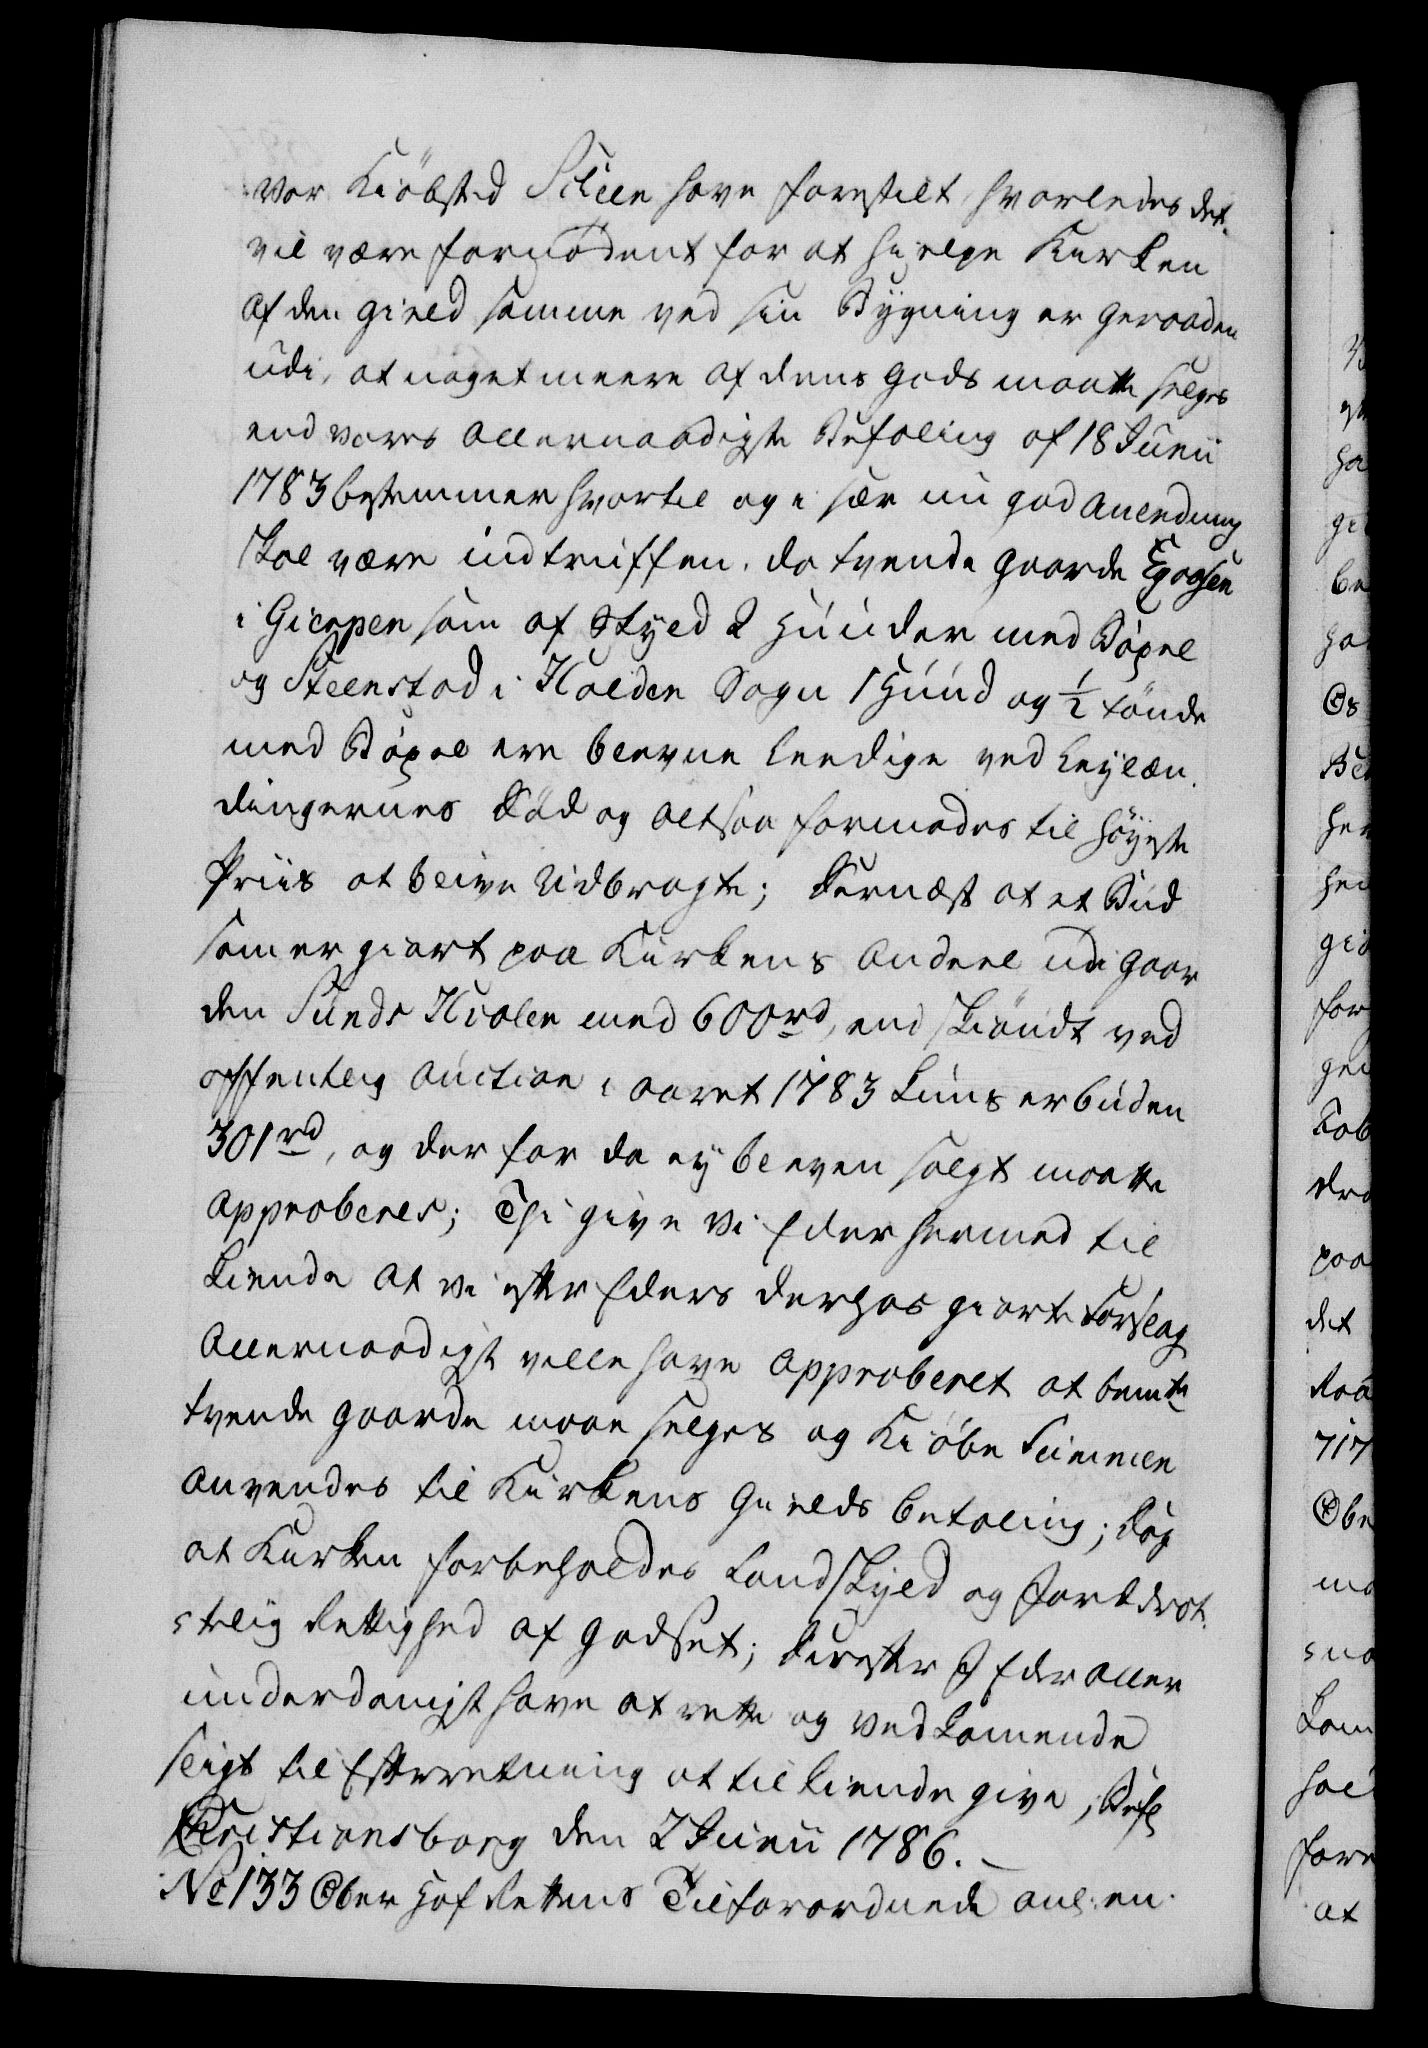 vor Kiöbsted Scheen have forestilt, hvorledes det
vil være fornødent for at hielpe Kirken
af den gield samme ved sin Bygning er geraaden
udi, at noget meere af dens gods maatte selges
end vores allernaadigste Befaling af 18 Junii
1783 bestemmer hvortil og i sær nu god Anledning
skal være indtruffen, da tvende gaarde
i Gierpen som af skyld 2 Huuder med Bøxel
og Steenstad i Holden Sogn 1 Huud og ½ tønde
med Bøxel ere blevne leedige ved Leylæn-
dingernes Død og altsaa formodes til høyeste
Priis at blive Udbragte; Dernæst at et Bud
som er giort paa Kirkens Andeel udi gaar
den Sunds Kiolen med 600 rd, end skiöndt ved
offentlig Auction i aaret 1783 kuns er buden
301 rd, og der for da ey bleven solgt maatte
approberes; Thi give Vi Eder hermed til
kiende at vi efter Eders derhos giorte Forslag
Allernaadigst ville have approberet at bemte
tvende gaarde maae selges og Kiöbe Summen
anvendes til Kirkens Gields betaling; dog
at Kirken forbeholdes Landskyld og Jordrot-
telig Rettighed af godset; Derefter I Eder aller
underdanigst have at rette og vedkomende
sligt til Efterretning at tilkiende give, Befl
Christiansborg den 2 Junii 1786. –
No 133 Ober Hof Rettens Tilforordnede anl: en